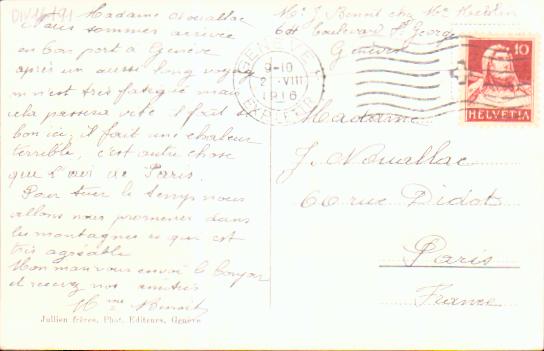 Madame Nouallac
Nous sommes arrivée
en bon port a Genève
après un aussi long voyage
m'n'est très fatigué mais
cela passera vite il fait si
bon ici, il fait une chaleur
terrible, c'est autre chose
que l'air de Paris.
Pour tuer le temps nous
allons nous promener dans
les montagnes ce que est
très agréable
Mon mari vous envoi le bonjour
et recevez nos amitiés
Mme Benoit
Jullien frères, Phot. Editeurs, Genève
Me J. Benoit chez Me
64 boulevard St Georges
Genève
GENÈVE 1
9-10
2 VIII
1916
EXP. LETTR.
10
HELVETIA
Madame
J. Nouallac
66 rue Didot
Paris
France